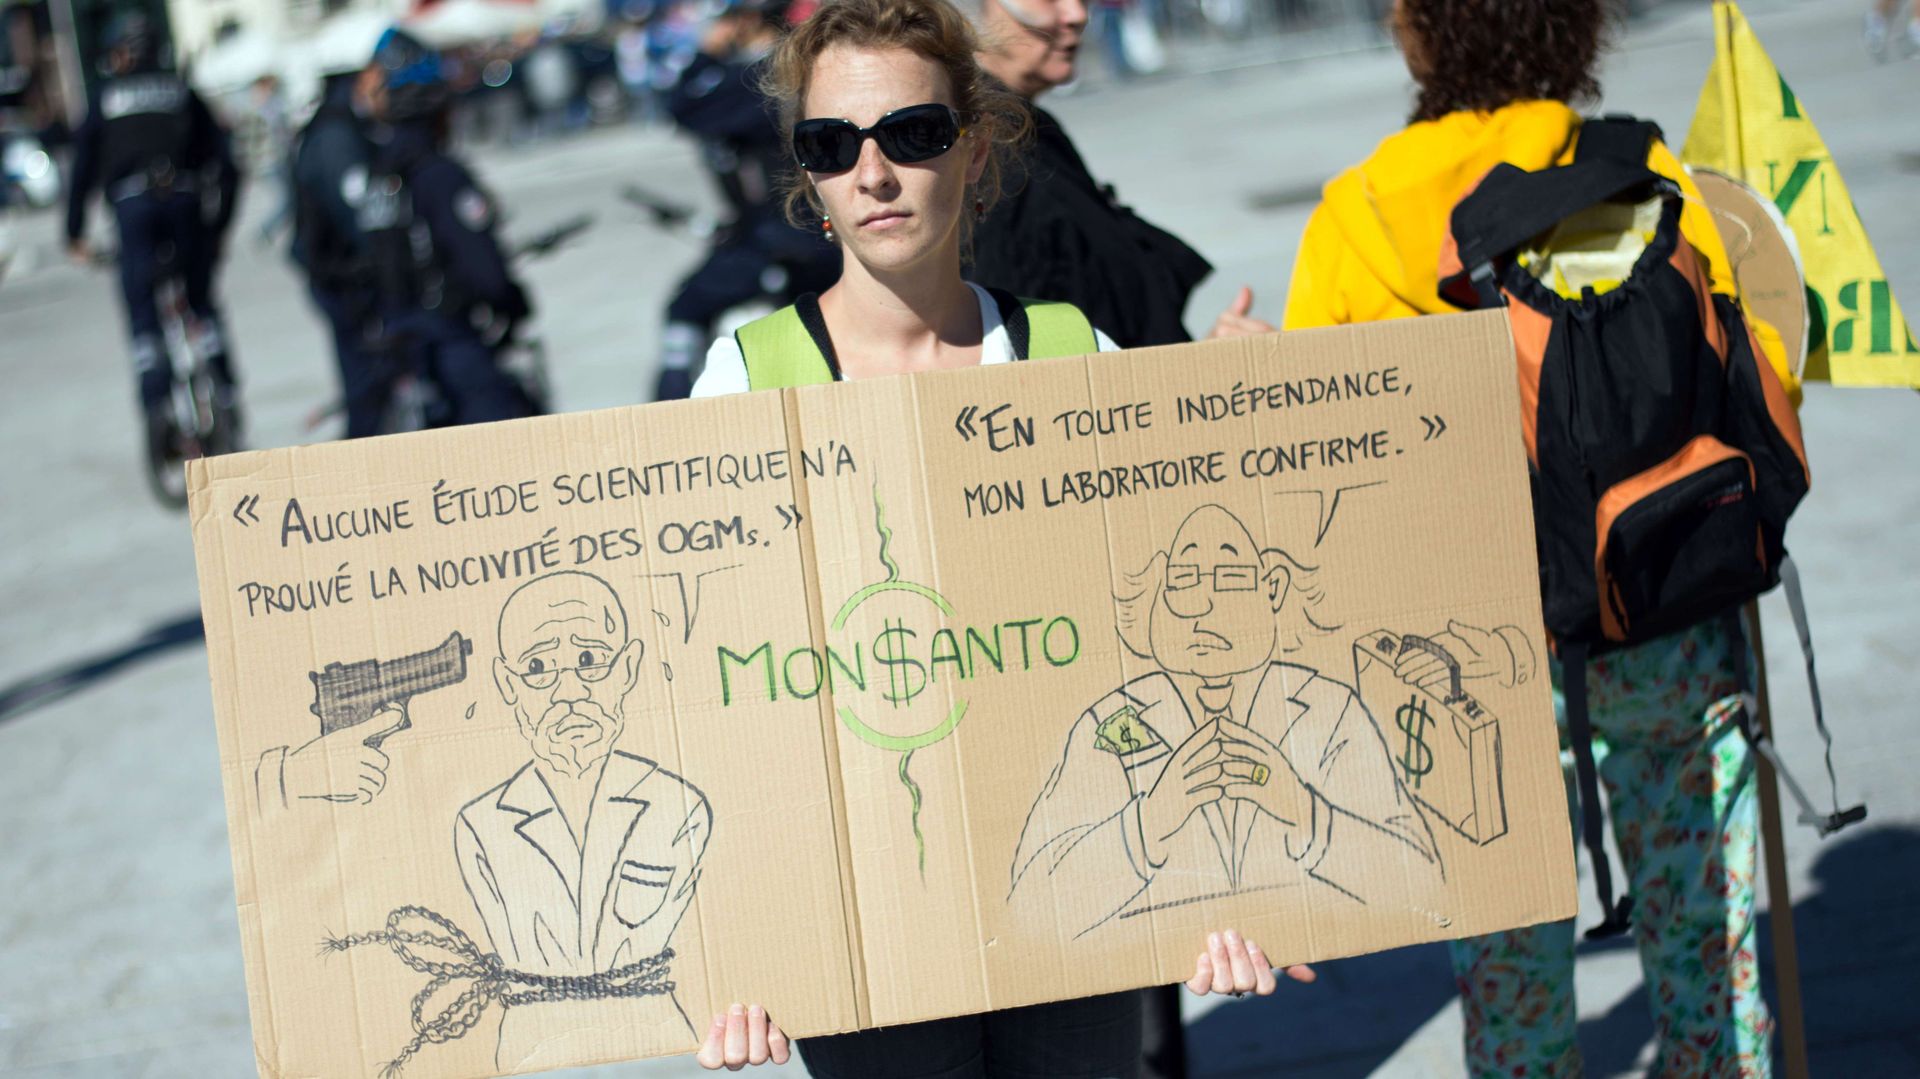 « AUCUNE ÉTUDE SCIENTIFIQUE N'A
PROUVÉ LA NOCIVITÉ DES OGMs. »
« EN TOUTE INDÉPENDANCE,
MON LABORATOIRE CONFIRME. »
MON$ANTO
$
$
$